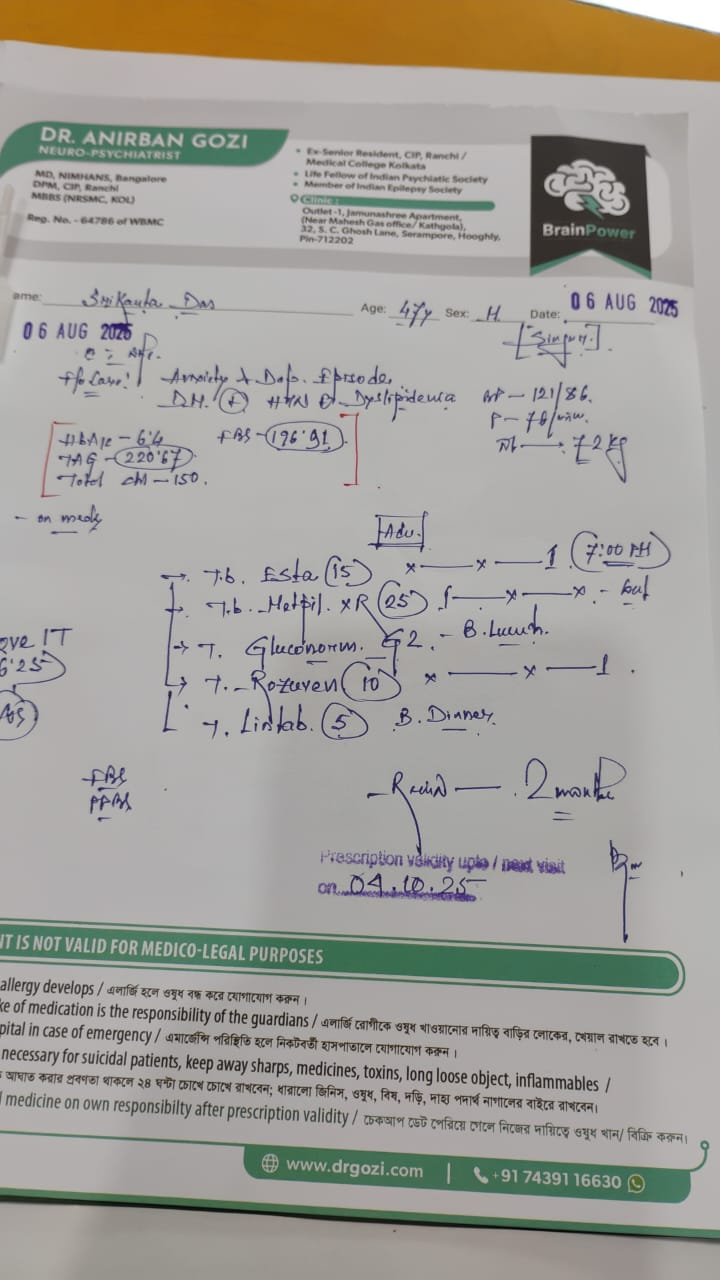 DR. ANIRBAN GOZI
NEURO-PSYCHIATRIST
MD, NIMHANS, Bangalore
DPM, CIP, Ranchi
MBBS (NRSMC, KOL)
Reg. No. - 64786 of WBMC
• Ex-Senior Resident, CIP, Ranchi /
Medical College Kolkata
• Life Fellow of Indian Psychiatic Society
• Member of Indian Epilepsy Society
Clinic :
Outlet-1, Jamunashree Apartment,
(Near Mahesh Gas office/ Kathgola),
32, S. C. Ghosh Lane, Serampore, Hooghly,
Pin-712202
BrainPower
ame: Srikanta Das Age: 47y Sex: M Date: 06 AUG 2025
06 AUG 2025
[Singur].
Anxiety & Dep. Episode,
D.M. (+) HTN Dyslipidemia
BP - 121/86.
P - 76/min.
72 kg
HbA1c - 6.4 FBS - 196.91
TAG - 220.67
Total chl - 150.
- on meds
Adv.
→ Tb. Esta (15) x — x — 1 (7:00 PM)
→ Tb. Metpil. XR (25) 1 — x — x. -
→ T. Gluconorm. G2. - B. Lunch.
→ T. Rozuven (10) x — x — 1.
T. Linlab. (5) B. Dinner.
ove IT
6.25
FBS
PPBS
2 months
Prescription validity upto / next visit
on 04.10.25
IT IS NOT VALID FOR MEDICO-LEGAL PURPOSES
allergy develops / এলার্জি হলে ওষুধ বন্ধ করে যোগাযোগ করুন ।
ke of medication is the responsibility of the guardians / এলার্জি রোগীকে ওষুধ খাওয়ানোর দায়িত্ব বাড়ির লোকের, খেয়াল রাখতে হবে ।
pital in case of emergency / এমার্জেন্সি পরিস্থিতি হলে নিকটবর্তী হাসপাতালে যোগাযোগ করুন ।
necessary for suicidal patients, keep away sharps, medicines, toxins, long loose object, inflammables /
আঘাত করার প্রবণতা থাকলে ২৪ ঘন্টা চোখে চোখে রাখবেন; ধারালো জিনিস, ওষুধ, বিষ, দড়ি, দাহ্য পদার্থ নাগালের বাইরে রাখবেন।
medicine on own responsibilty after prescription validity / চেকআপ ডেট পেরিয়ে গেলে নিজের দায়িত্বে ওষুধ খান/ বিক্রি করুন।
www.drgozi.com | +91 74391 16630